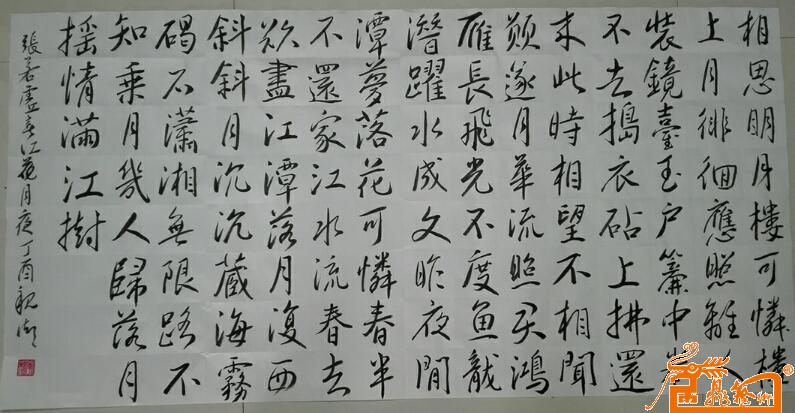 相思明月樓可憐樓
上月徘徊應照離人
裝鏡臺玉户簾中卷
不去搗衣砧上拂還
来此時相望不相聞
願逐月華流照君鴻
雁長飛光不度魚龍
潛躍水成文昨夜閒
潭夢落花可憐春半
不還家江水流春去
欲盡江潭落月復西
斜斜月沉沉藏海霧
碣石瀟湘無限路不
知乘月幾人歸落月
摇情滿江樹
張若虛春江花月夜丁酉